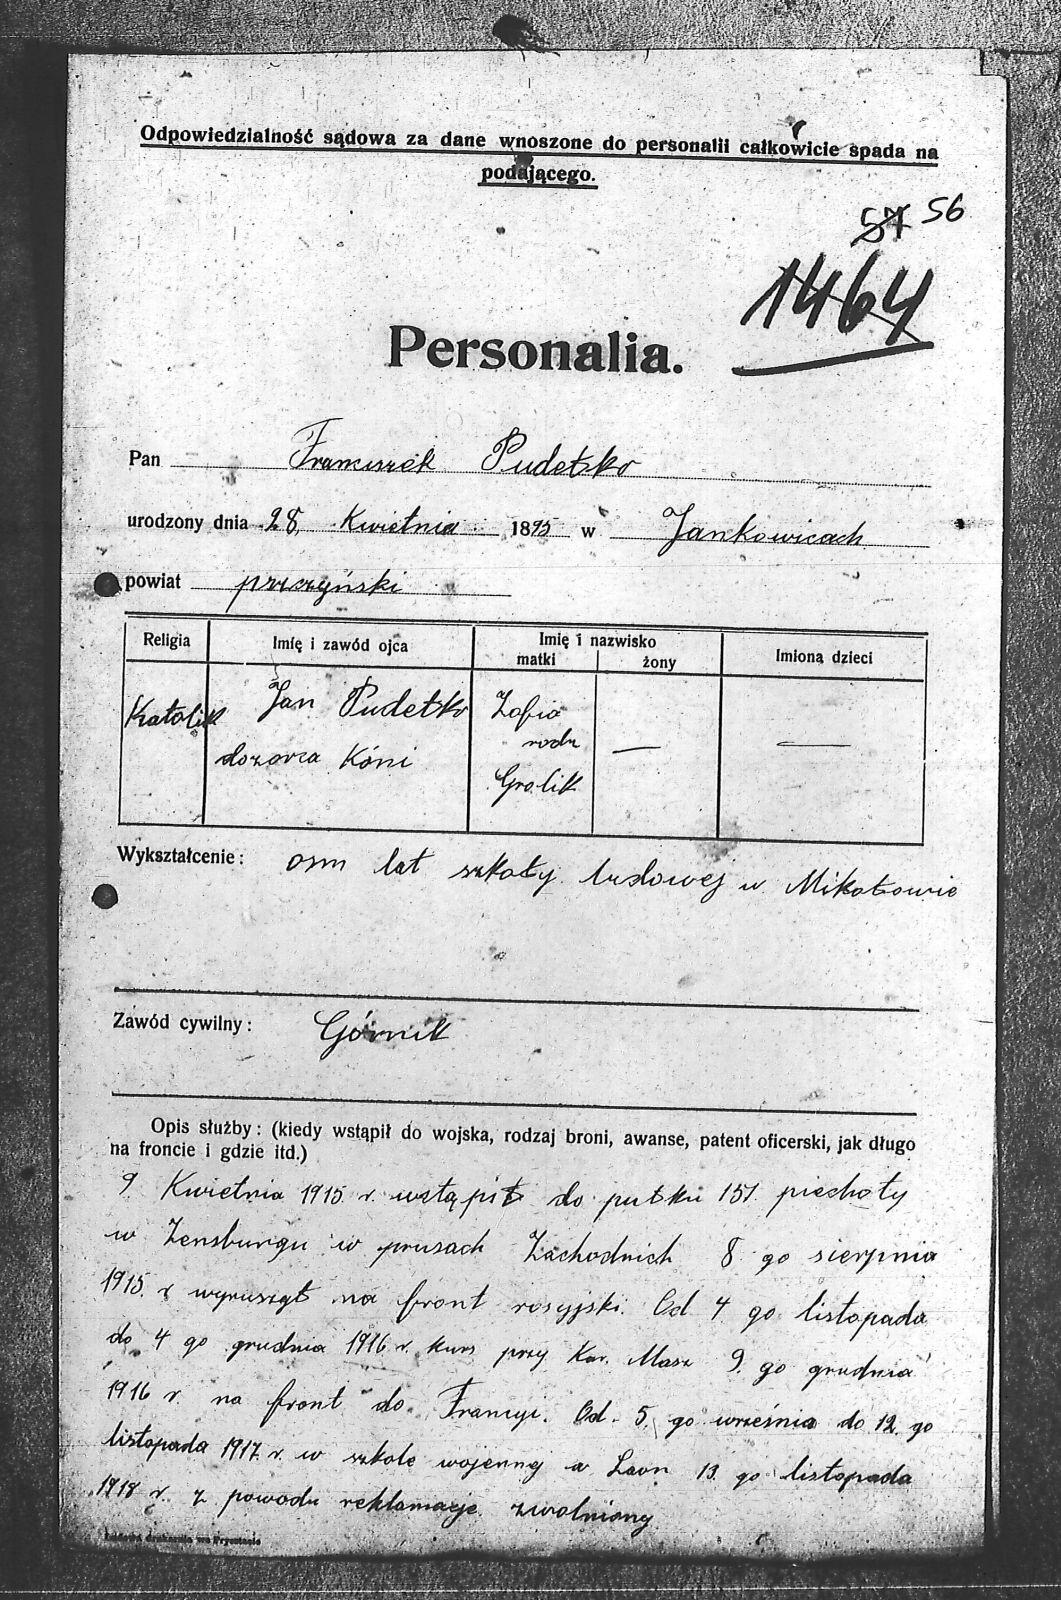 Odpowiedzialność sądowa za dane wnoszone do personalii całkowicie spada na
podającego.
57 56
1464
Personalia.
Pan Franciszek Pudełko
urodzony dnia 28. Kwietnia 1895 w Jankowicach
powiat przczyński
Religia
Imię i zawód ojca
Imię i nazwisko
matki
żony
Imiona dzieci
Katolik
Jan Pudełko
dozorca Kóni
Zofia
rodz
Grolik
—
—
Wykształcenie: osm lat szkoły ludowej w Mikołowie
Zawód cywilny: Górnik
Opis służby: (kiedy wstąpił do wojska, rodzaj broni, awanse, patent oficerski, jak długo
na froncie i gdzie itd.)
9. Kwietnia 1915 r. wstąpił do pułku 151. piechoty
w Zensburgu w prusach Zachodnich 8 go sierpnia
1915. r wyruszył na front rosyjski. Od 4 go listopada
do 4 go grudnia 1916 r. kurs przy Kar. Masz 9. go grudnia
1916 r. na front do Francyi. Od 5. go września do 12. go
listopada 1917. r. w szkole wojennej w Laon 13. go listopada
1918 r. z powodu reklamacje zwolniony
drukarnia we Frysztacie